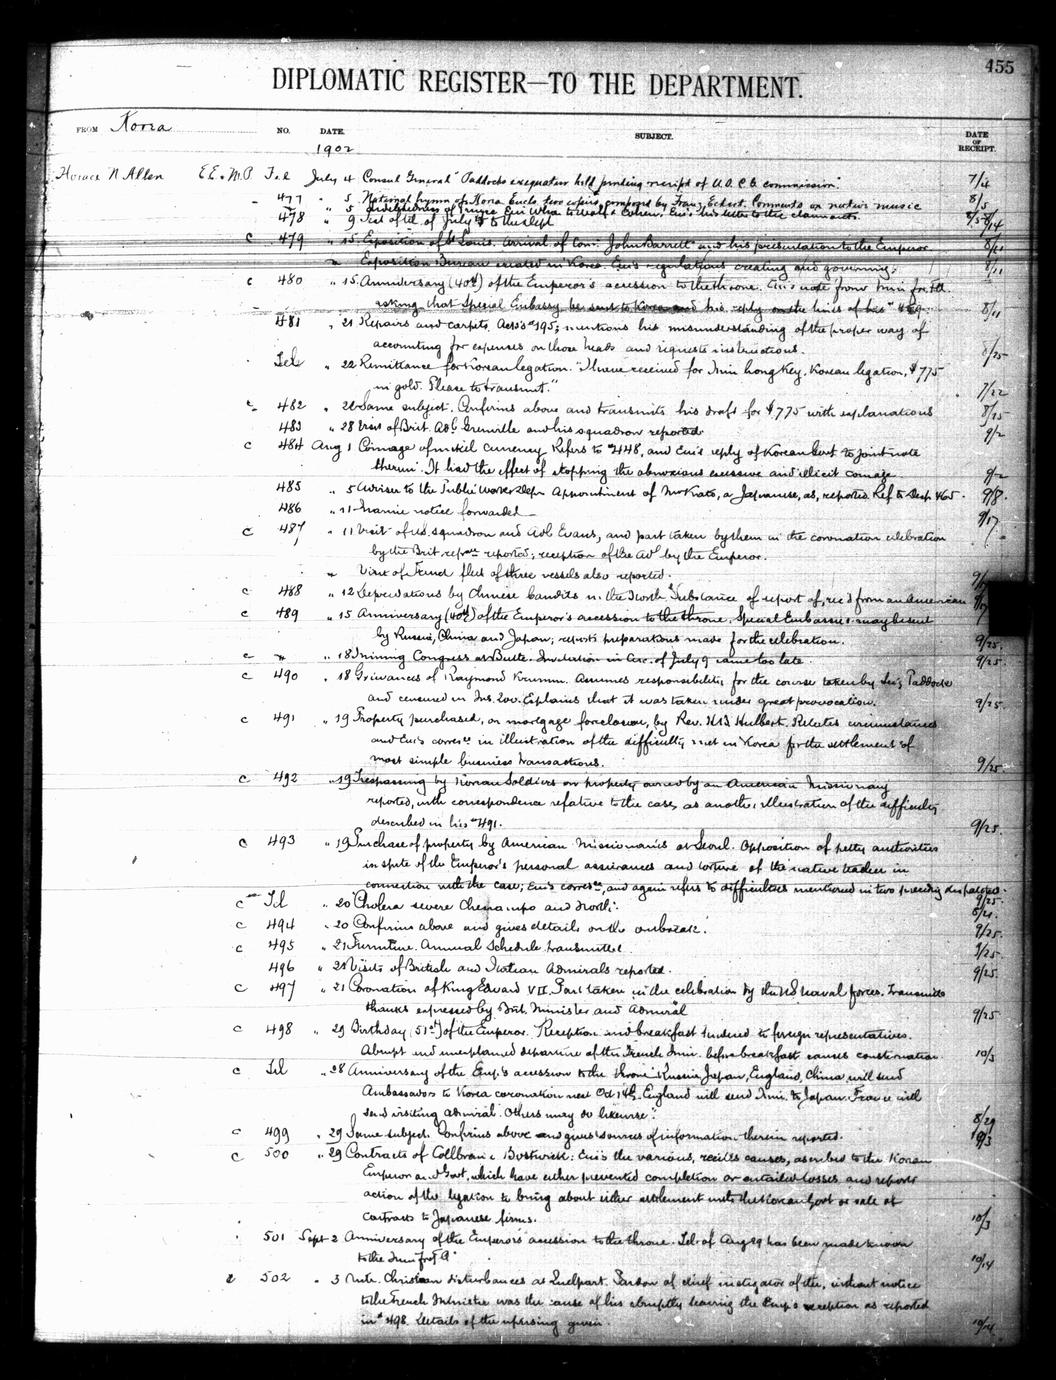 455
DIPLOMATIC REGISTER—TO THE DEPARTMENT.
FROM Korea NO. DATE. SUBJECT. DATE OF RECEIPT.
1902
Horace N Allen E.E. & M.P. Tel July 4 Consul General Paddock's exequatur held pending receipt of commission. 7/4
477 " 5 National hymn of Korea Encls two copies composed by Franz Eckert. Comments on native music 8/5
478 " 9 Tel of July to the Dept
c 479 " 15 Exposition at St Louis. Arrival of Com. John Barrett and his presentation to the Emperor 8/11
" Exposition Bureau created in Korea. Enc's regulations creating and governing. 8/11
c 480 " 15 Anniversary (40th) of the Emperor's accession to the throne. Enc's note from Min for Aff.
asking that Special Embassy be sent to Korea and his reply on the lines of his 8/11
481 " 21 Repairs and carpets. Acks #195; mentions his misunderstanding of the proper way of
accounting for expenses on those heads and requests instructions. 8/25
Tel " 22 Remittance for Korean legation. "I have received for Min hong Key, Korean legation, $775
in gold. Please to transmit." 7/22
c 482 " 26 Same subject. Confirms above and transmits his draft for $775 with explanations 8/25
483 " 28 Visit of Brit. Adl. Grenville and his squadron reported 9/2
c 484 Aug 1 Coinage of nickel currency Refers to #448, and Enc's reply of Korean Govt to joint note
therein. It had the effect of stopping the obnoxious excessive and illicit coinage 9/2
485 " 5 Adviser to the Public Works Dept Appointment of Mr Kato, a Japanese, as, reported. Ref to Desp 465. 9/8
486 " 11 Name notice forwarded 9/17
c 487 " 11 Visit of U.S. squadron and Adl Evans, and part taken by them in the coronation celebration
by the Brit repve reported; reception of the Adl by the Emperor.
" Visit of French fleet of three vessels also reported.
c 488 " 12 Depredations by Chinese bandits in the North. Substance of report of, rec'd from an American
c 489 " 15 Anniversary (40th) of the Emperor's accession to the throne. Special Embassies may be sent
by Russia, China and Japan; reports preparations made for the celebration. 9/25
c " " 18 Mining Congress at Butte. Invitation in Circ. of July 9 came too late 9/25
c 490 " 18 Grievances of Raymond Krumm. Assumes responsibility for the course taken by Paddock
and censured in Ins. 200. Explains that it was taken under great provocation. 9/25
c 491 " 19 Property purchased, on mortgage foreclosure, by Rev. H B Hulbert. Relates circumstances
and Enc's corresce in illustration of the difficulty met in Korea for the settlement of
most simple business transactions. 9/25
c 492 " 19 Trespassing by Korean Soldiers on property owned by an American Missionary
reported, with correspondence relative to the case, as another illustration of the difficulty
described in his #491. 9/25
c 493 " 19 Purchase of property by American Missionaries at Seoul. Opposition of petty authorities
in spite of the Emperor's personal assurances and torture of the native trader in
connection with the case; Enc's corresce, and again refers to difficulties mentioned in two preceding despatches. 9/25
c Tel " 20 "Cholera severe Chemulpo and North." 8/21
c 494 " 20 Confirms above and gives details on the outbreak. 9/25
c 495 " 21 Furniture. Annual Schedule transmitted. 9/25
496 " 21 Visits of British and Italian Admirals reported. 9/25
c 497 " 21 Coronation of King Edward VII. Part taken in the celebration by the US naval forces. Transmits
thanks expressed by Brit. Minister and Admiral 9/25
c 498 " 29 Birthday (51st) of the Emperor. Reception and breakfast tendered to foreign representatives.
Abrupt and unexplained departure of the French Min. before breakfast causes consternation. 10/3
c Tel " 28 Anniversary of the Emp's accession to the throne "Russia, Japan, England, China will send
Ambassadors to Korea coronation next Oct 18th. England will send Min. to Japan. France will
send visiting admiral. Others may do likewise." 8/29
c 499 " 29 Same subject. Confirms above and gives sources of information therein reported. 10/3
c 500 " 29 Contracts of Collbran & Bostwick: Enc's the various, recites causes, ascribed to the Korean
Emperor and Govt, which have either prevented completion or entailed losses, and reports
action of the legation to bring about either settlement with the Korean Govt or sale of
contracts to Japanese firms. 10/3
501 Sept 2 Anniversary of the Emperor's accession to the throne. Tel. of Aug 29 has been made known
to the Min for A. 10/14
c 502 " 3 Anti. Christian disturbances at Quelpart. Pardon of chief instigator of the, without notice
to the French Minister was the cause of his abruptly leaving the Emp's reception as reported
in #498. Details of the uprising given. 10/14